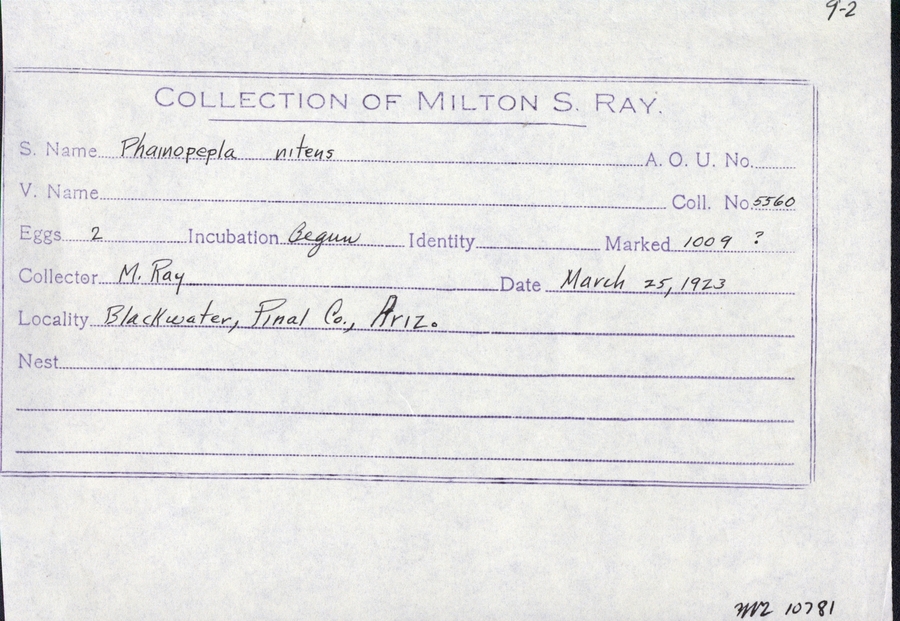 9-2
COLLECTION OF MILTON S. RAY.
S. Name Phainopepla nitens A. O. U. No.
V. Name Coll. No. 5560
Eggs 2 Incubation Begun Identity Marked 1009 ?
Collector M. Ray Date March 25, 1923
Locality Blackwater, Pinal Co., Ariz.
Nest
MVZ 10781